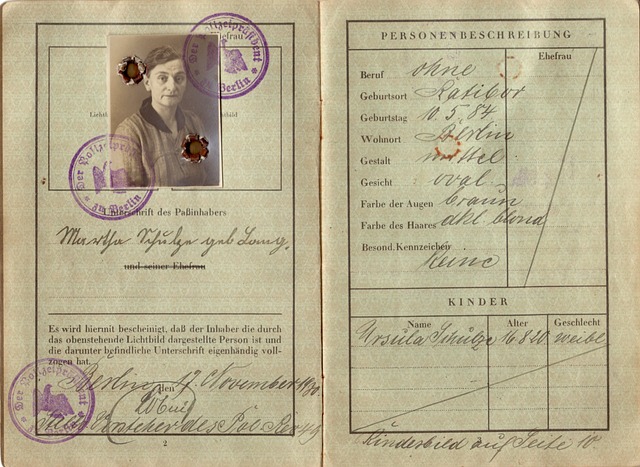 Der Polizeipräsident
in Berlin
Ehefrau
Der Polizeipräsident
in Berlin
Unterschrift des Paßinhabers
Martha Schulze geb.
und seiner Ehefrau
Es wird hiermit bescheinigt, daß der Inhaber die durch
das obenstehende Lichtbild dargestellte Person ist und
die darunter befindliche Unterschrift eigenhändig voll-
zogen hat.
Berlin, den 17. November 1930.
Der Polizeipräsident
in Berlin
des Pol
2
PERSONENBESCHREIBUNG
Ehefrau
Beruf ohne
Geburtsort Ratibor
Geburtstag 10.5.84
Wohnort Berlin
Gestalt mittel
Gesicht oval
Farbe der Augen braun
Farbe des Haares dkl. blond
Besond. Kennzeichen
Keine
KINDER
Name Alter Geschlecht
Ursula Schulze 16 8 20 weibl
Kinderbild auf Seite 10.